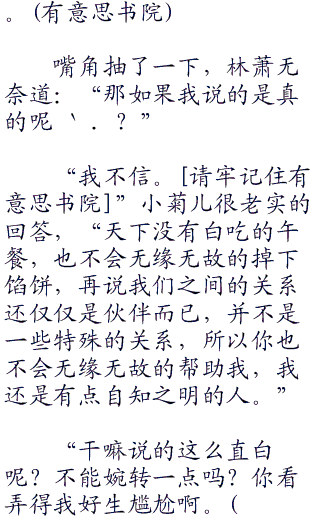 。(有意思书院)
嘴角抽了一下，林萧无
奈道：“那如果我说的是真
的呢｀．？”
“我不信。[请牢记住有
意思书院]”小菊儿很老实的
回答，“天下没有白吃的午
餐，也不会无缘无故的掉下
馅饼，再说我们之间的关系
还仅仅是伙伴而已，并不是
一些特殊的关系，所以你也
不会无缘无故的帮助我，我
还是有点自知之明的人。”
“干嘛说的这么直白
呢？不能婉转一点吗？你看
弄得我好生尴尬啊。(